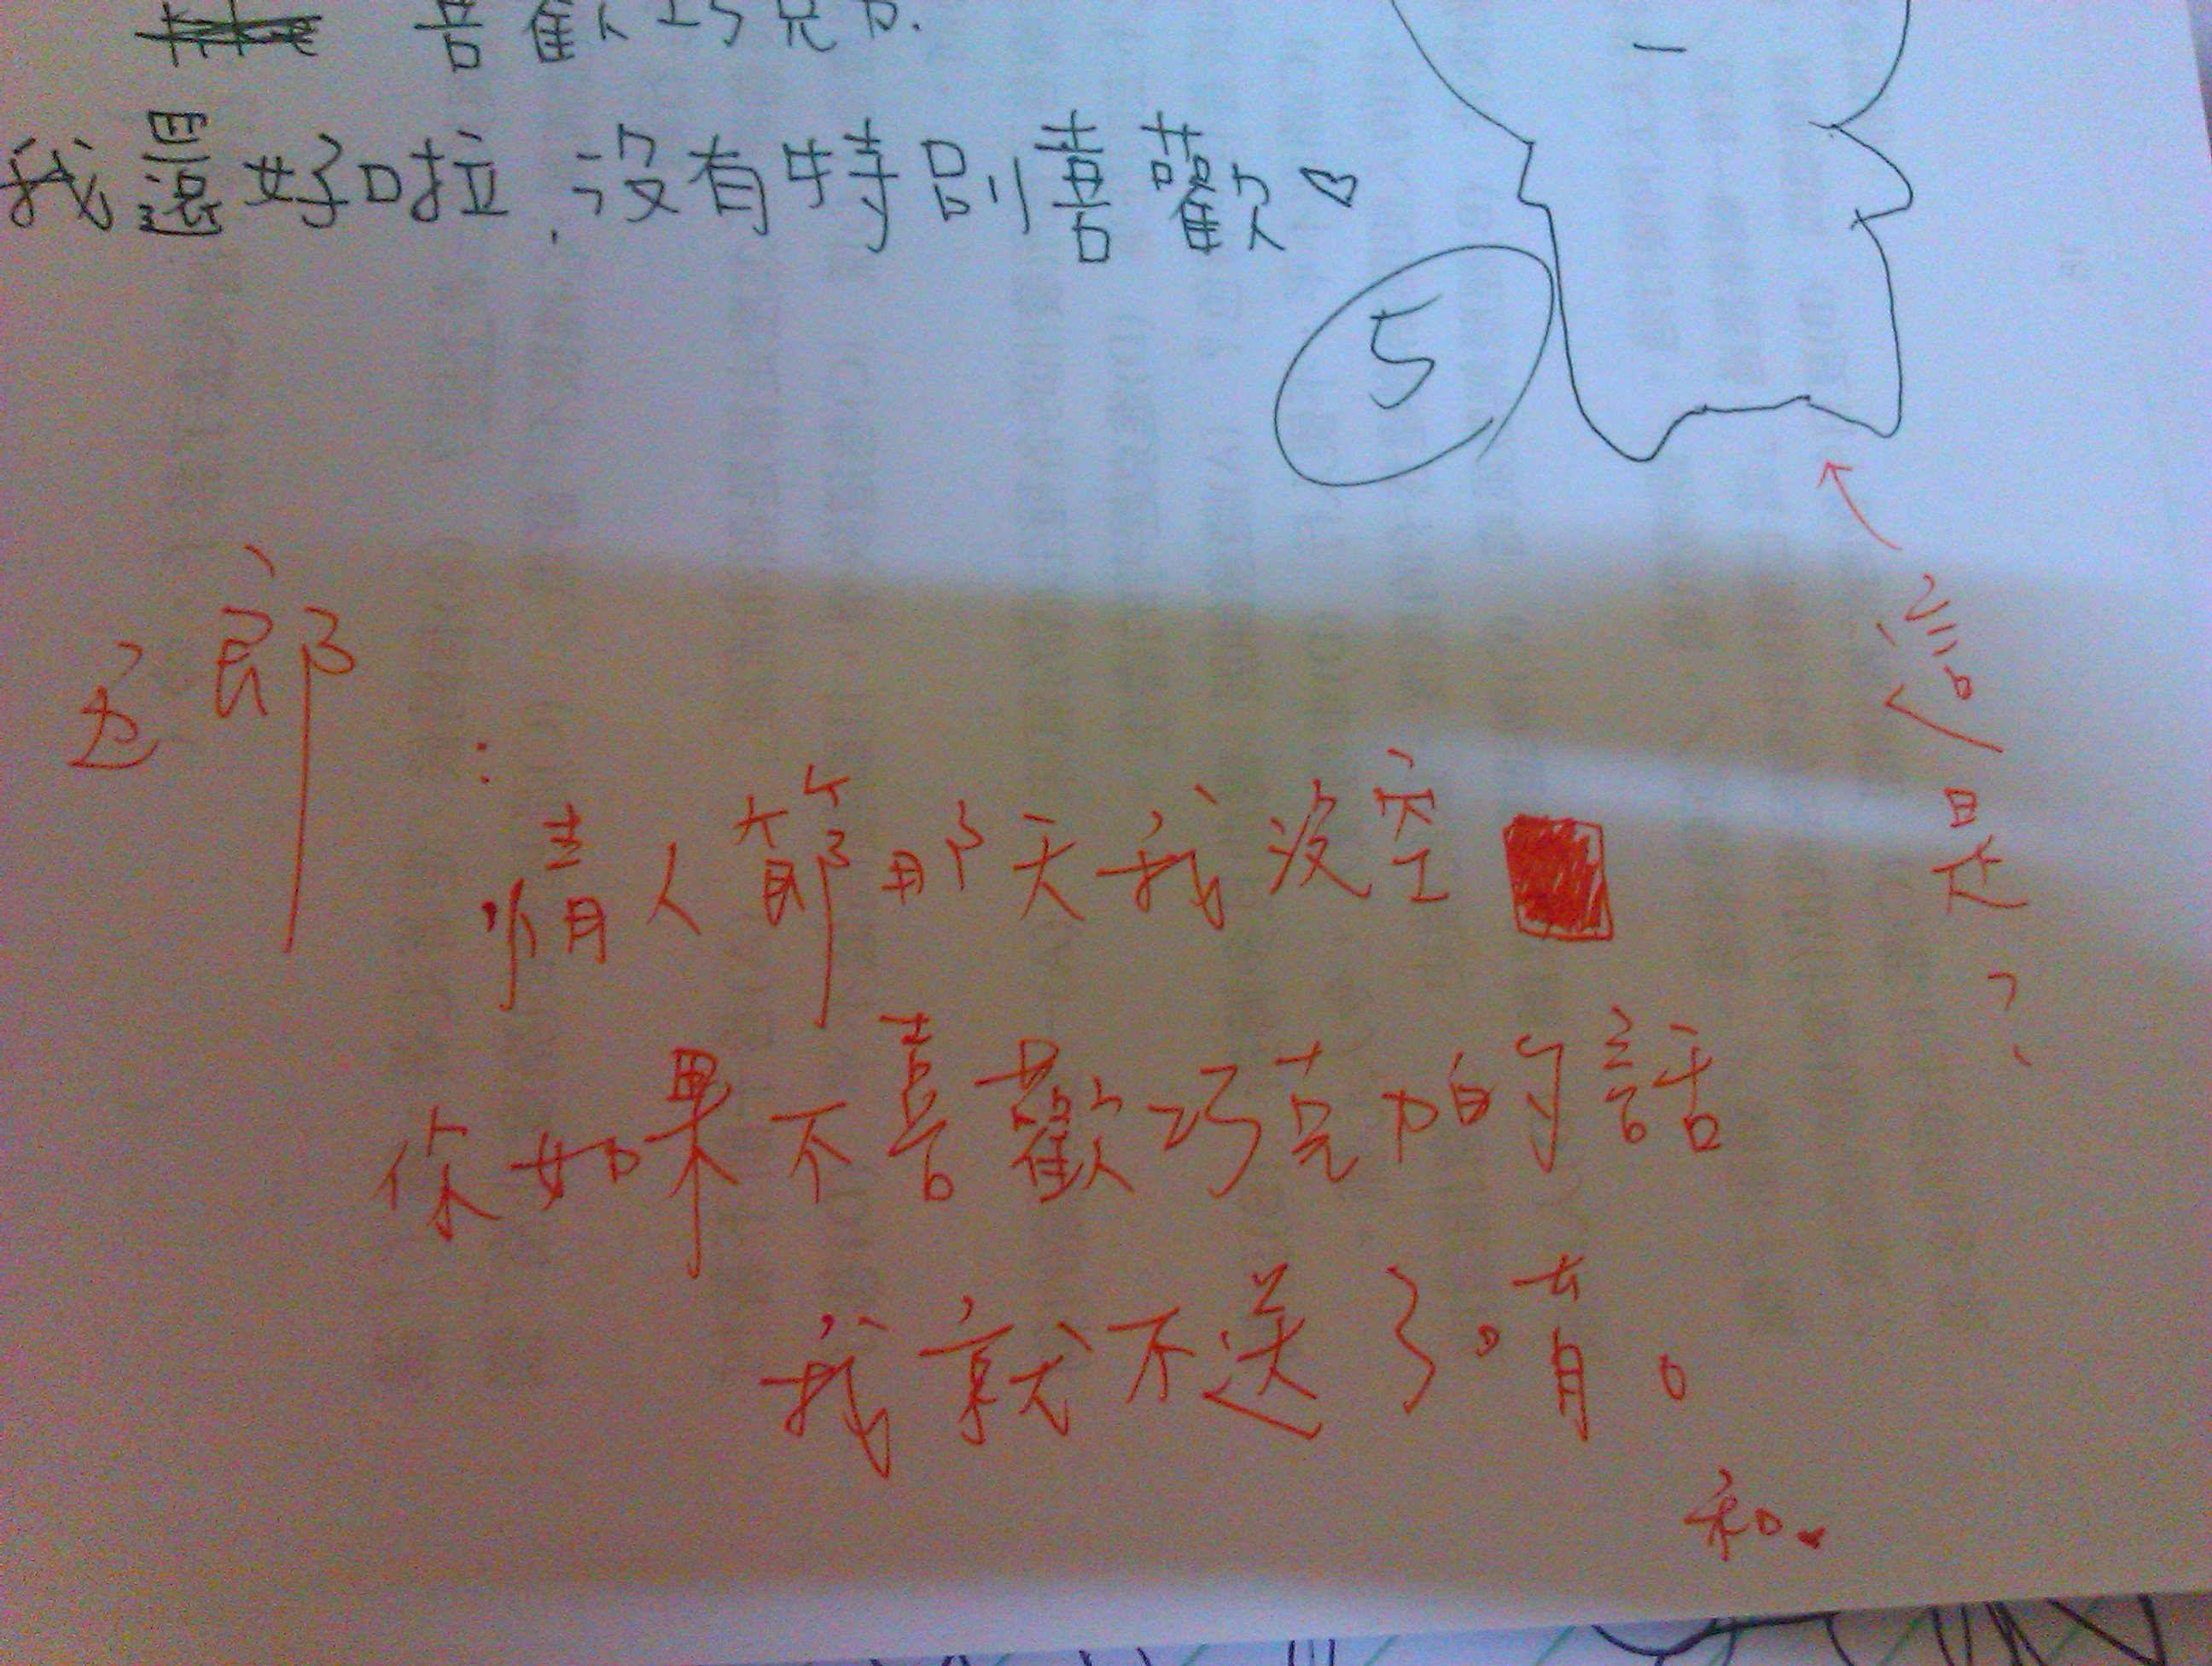 喜歡巧克力.
我還好啦,沒有特別喜歡♡
5
這是?
郎:
情人節那天我沒空
你如果不喜歡巧克力的話
我就不送了唷。
和